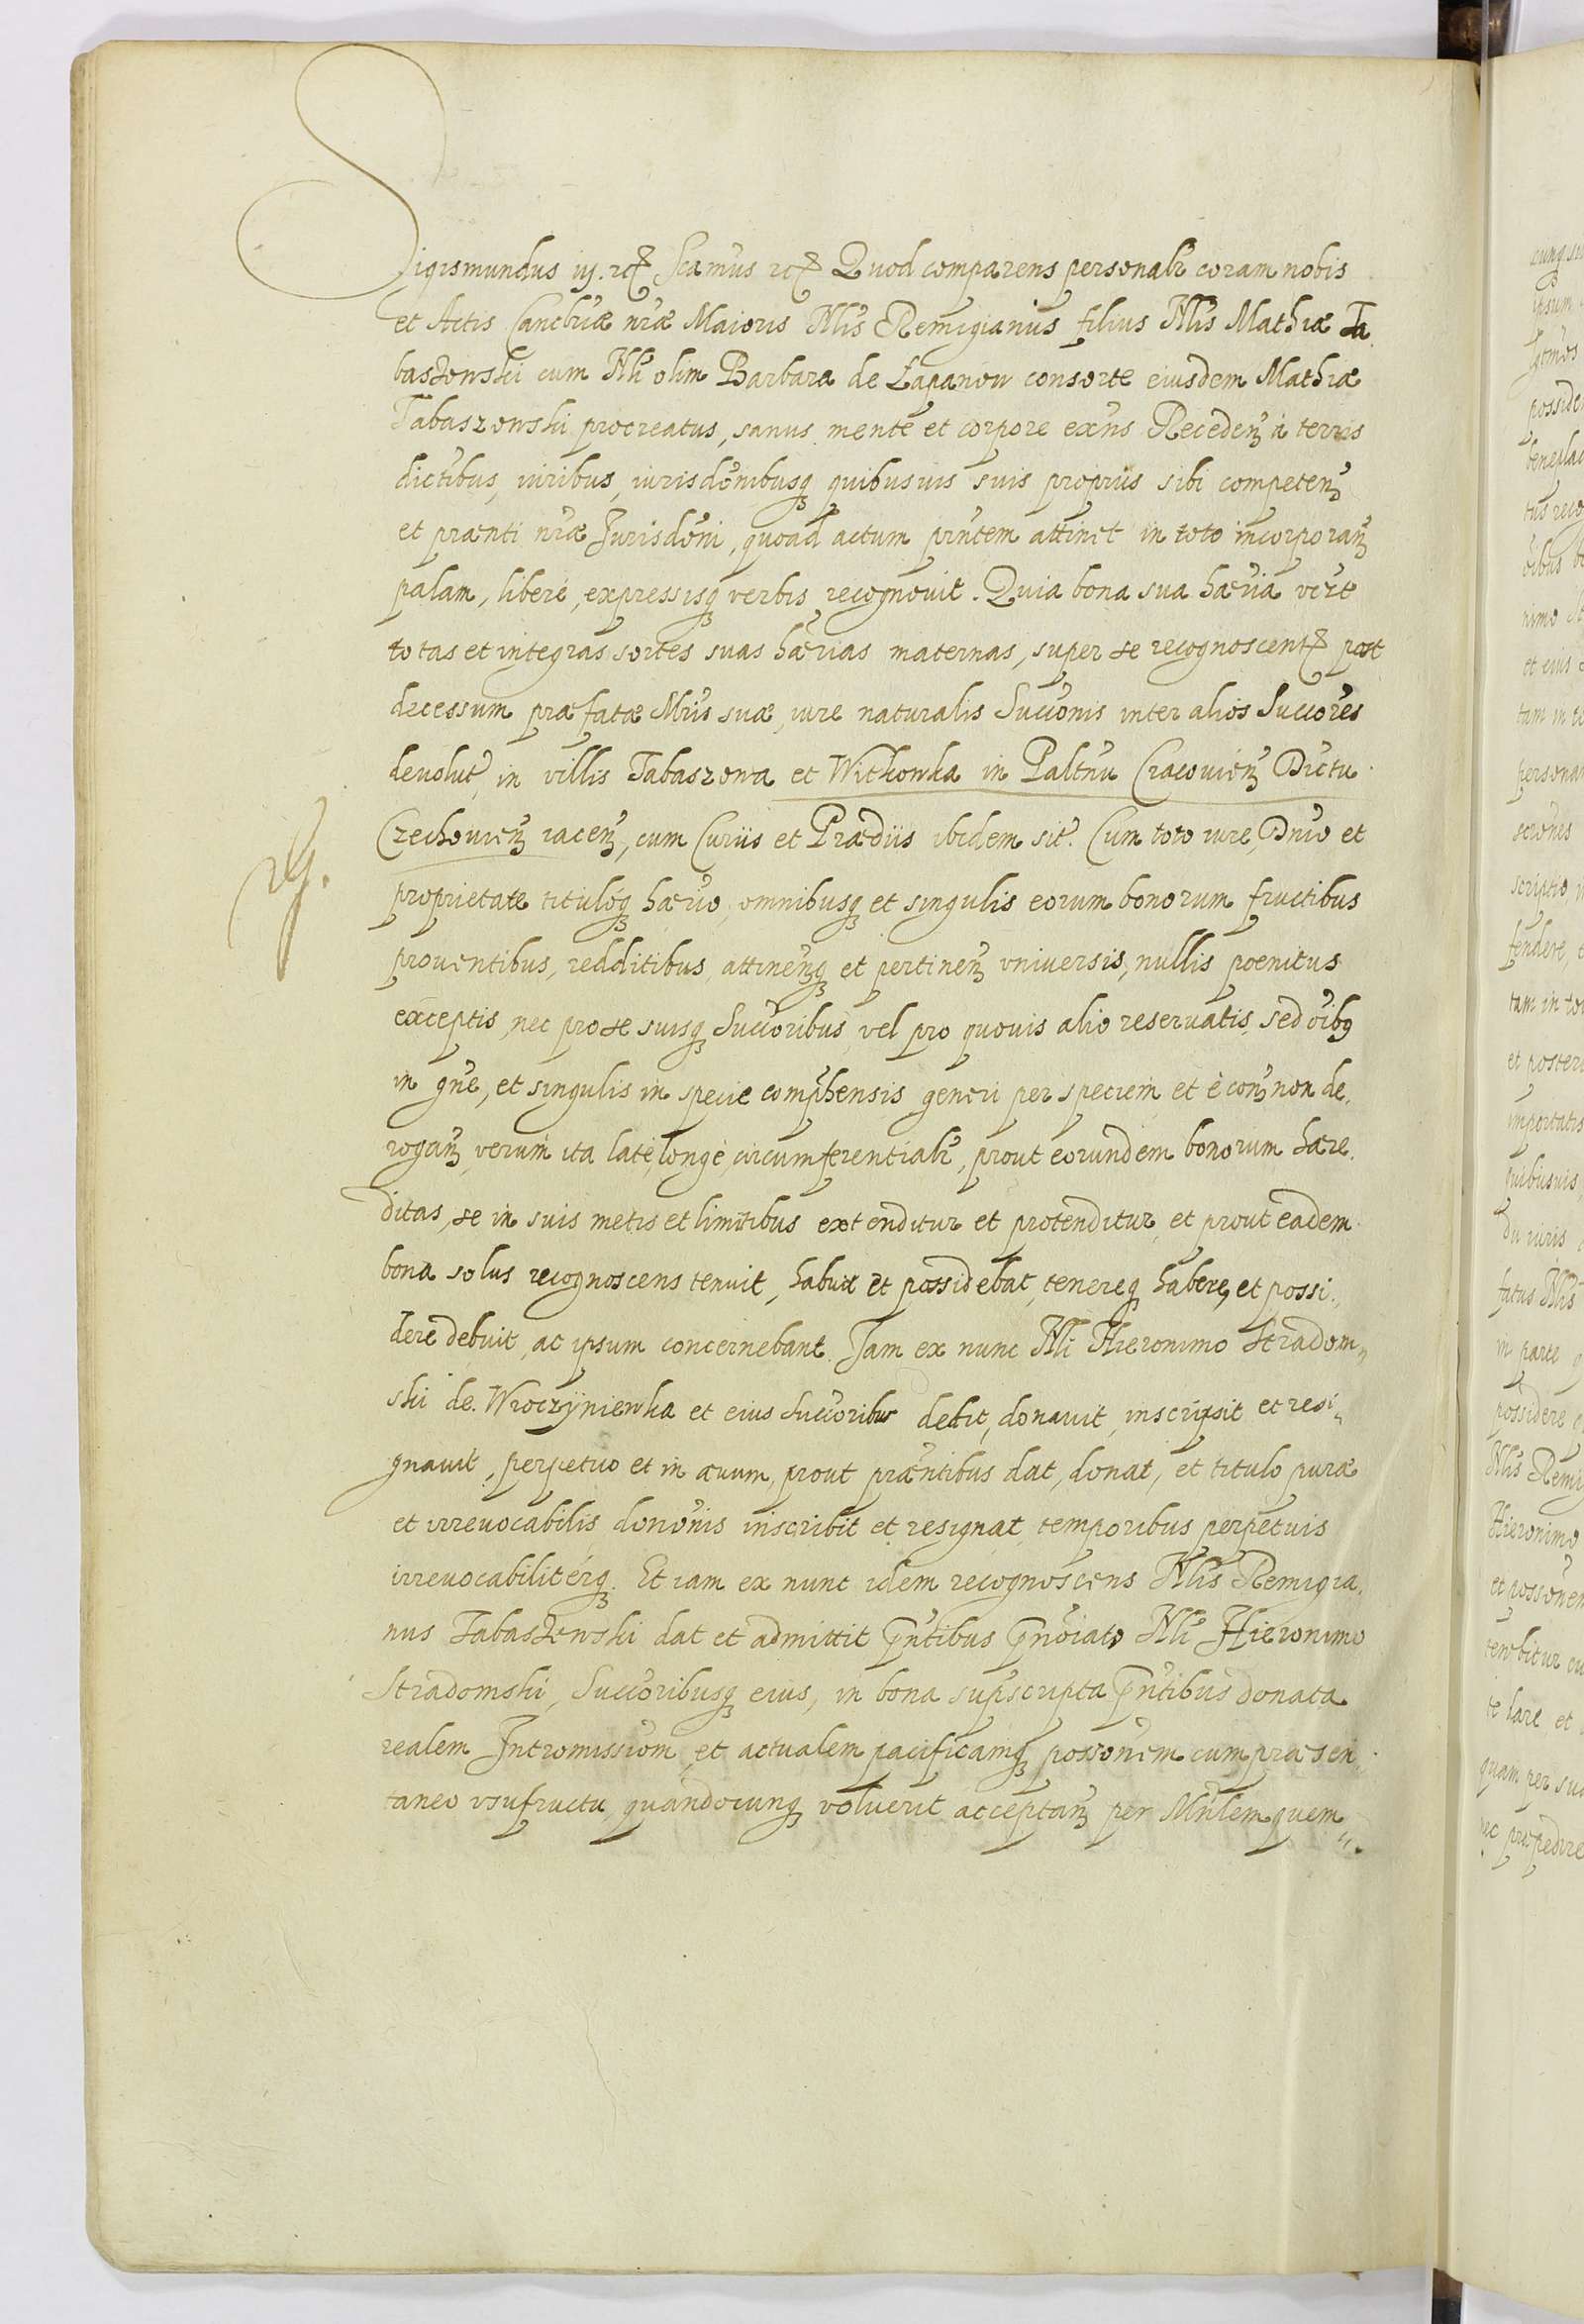 Sigismundus iij. etc Scamus etc Quod comparens personalr coram nobis
et Actis Cancbriæ nræ Maioris Nlis Remigianus filius Nlis Mathiæ Ta
baszowski cum Nli olim Barbara de Łapanow consorte eiusdem Mathiæ
Tabaszowski procreatus, sanus mente et corpore exns Recedenʒ à terris
dictibus, iuribus, iurisdonibusqʒ quibusuis suis propriis sibi competenʒ
et prænti nræ Jurisdoni, quoad actum printem attinet in toto incorporanʒ
palam, libere, expressisqʒ verbis recognovit. Quia bona sua hæria vere
totas et integras sortes suas hærias maternas, super se recognoscentʒ post
decessum præfatæ Mris suæ, iure naturalis Succonis inter alios Succores
devolut, in villis Tabaszowa et Witkowka in Paltnu Cracouienʒ Dictu
Czechouienʒ iacenʒ, cum Curiis et Prædiis ibidem sit. Cum toto iure, Dnio et
proprietate tituloqʒ hærio, omnibusqʒ et singulis eorum bonorum fructibus
prouentibus, redditibus, attinenʒqʒ et pertinenʒ vniuersis, nullis poenitus
exceptis, nec pro se suisqʒ Succoribus, vel pro quouis alio reseruatis, sed oibq
in gne, et singulis in specie comphensis generi per speciem et è conʒ non de.
roganʒ, verum ita late, longe, circumferentialr, prout eorundem bonorum hære.
ditas, se in suis metis et limitibus extenditur et protenditur, et prout eadem
bona solus recognoscens tenuit, habuit et possidebat, tenereqʒ habere, et possi.
dere debuit, ac ipsum concernebant. Jam ex nunc Nli Hieronimo Stradom
ski de. Wroczyniewka et eius Succoribus dedit, donauit, inscripsit et resi
gnauit, perpetuo et in æuum, prout præntibus dat, donat, et titulo puræ
et irreuocabilis dononis inscribit et resignat temporibus perpetuis
irreuocabiliterqʒ. Et iam ex nunc idem recognoscens Nlis Remigia.
nus Tabaszewski dat et admittit pntibus pnoiato Nli Hieronimo
Stradomski, Succoribusqʒ eius, in bona suprscripta pntibus donata
realem Intromissiom, et actualem pacificamqʒ possonem cum præsen
taneo vsufructu quandocunqʒ voluerit acceptanʒ per Mnlem quem